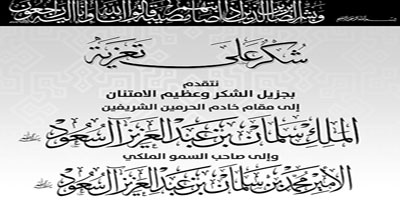 وبشر الصابرين الذين إذا أصابتهم مصيبة قالوا إنا لله وإنا إليه راجعون
شكر على تعزية
نتقدم
بجزيل الشكر وعظيم الامتنان
إلى مقام خادم الحرمين الشريفين
الملك سلمان بن عبد العزيز آل سعود
وإلى صاحب السمو الملكي
الأمير محمد بن سلمان بن عبد العزيز آل سعود